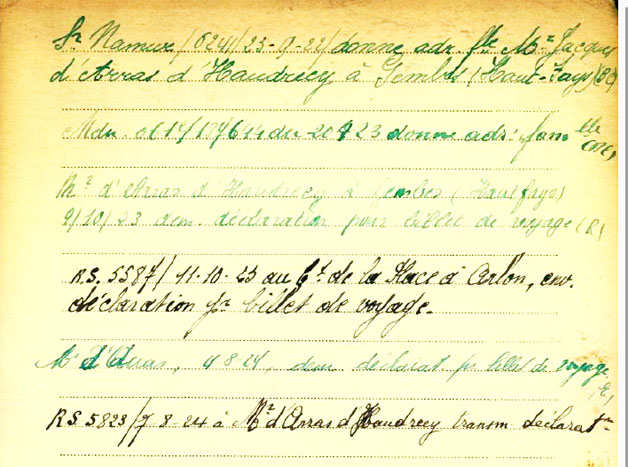 Sr Namur / 6241 / 25-9-22 / donne adr. fte Mr Jacques
d'Arras d'Haudrecy à Gembes (Haut-Fays)
Mdn donne adr. fam elle
Mr d'Arras d'Haudrecy à Gembes (Haut fays)
9/10/23 dem. déclaration pour billet de voyage (R)
R.S. 5587 / 11-10-23 au Ct de la Place d'Arlon, env.
déclaration pr billet de voyage.
Mr d'Arras, 4 8 24, dem déclarat. pr billet de voyage
RS 5823 / 7 8-24 à Mr d'Arras d'Haudrecy transm déclaratn